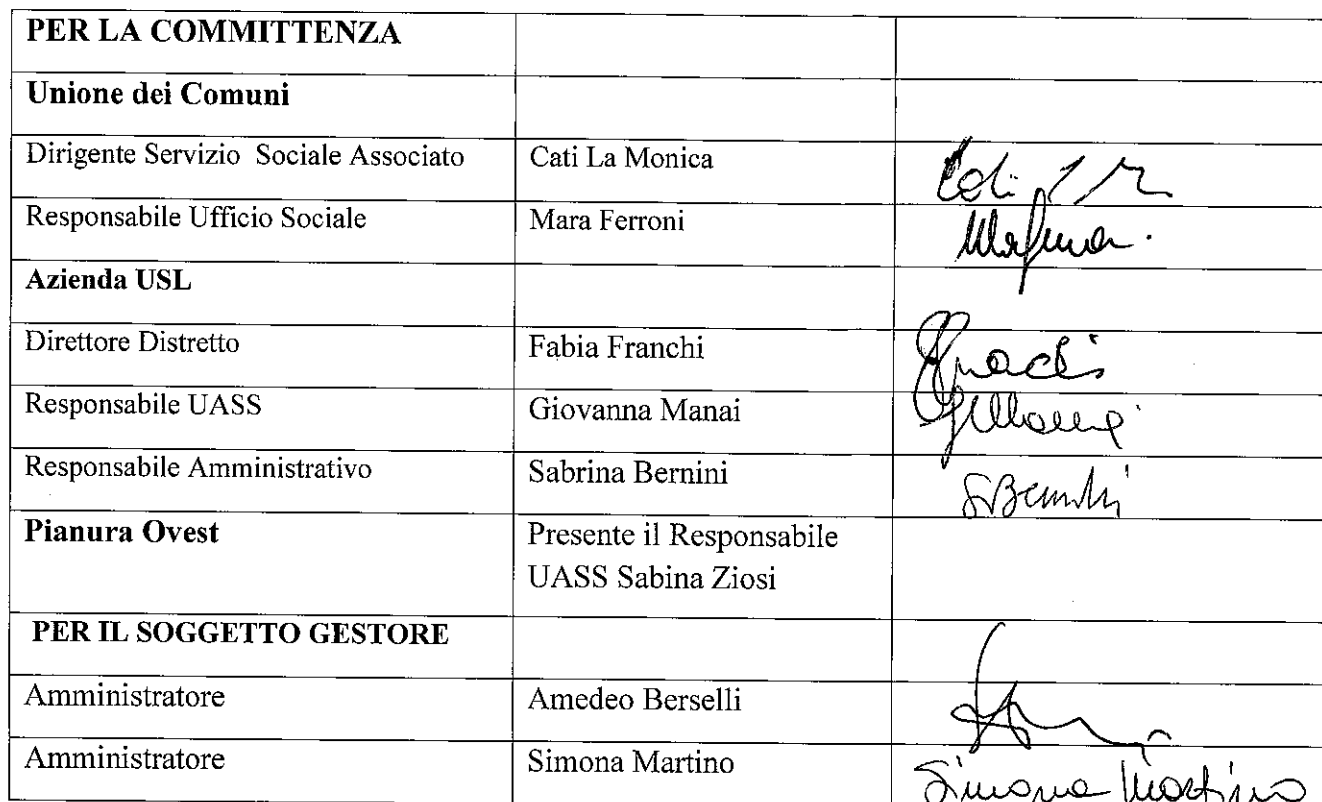 PER LA COMMITTENZA
Unione dei Comuni
Dirigente Servizio Sociale Associato Cati La Monica
Responsabile Ufficio Sociale Mara Ferroni
Azienda USL
Direttore Distretto Fabia Franchi
Responsabile UASS Giovanna Manai
Responsabile Amministrativo Sabrina Bernini
Pianura Ovest Presente il Responsabile
UASS Sabina Ziosi
PER IL SOGGETTO GESTORE
Amministratore Amedeo Berselli
Amministratore Simona Martino Simona Martino